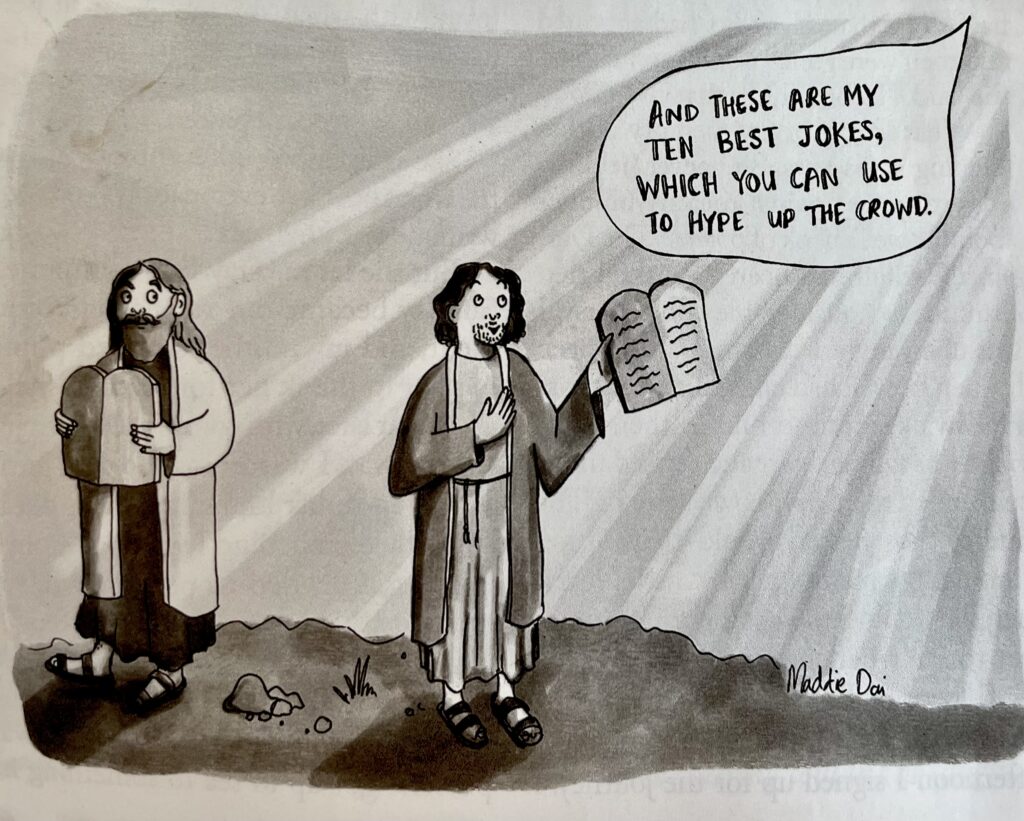 AND THESE ARE MY
TEN BEST JOKES,
WHICH YOU CAN USE
TO HYPE UP THE CROWD.
Maddie Dai